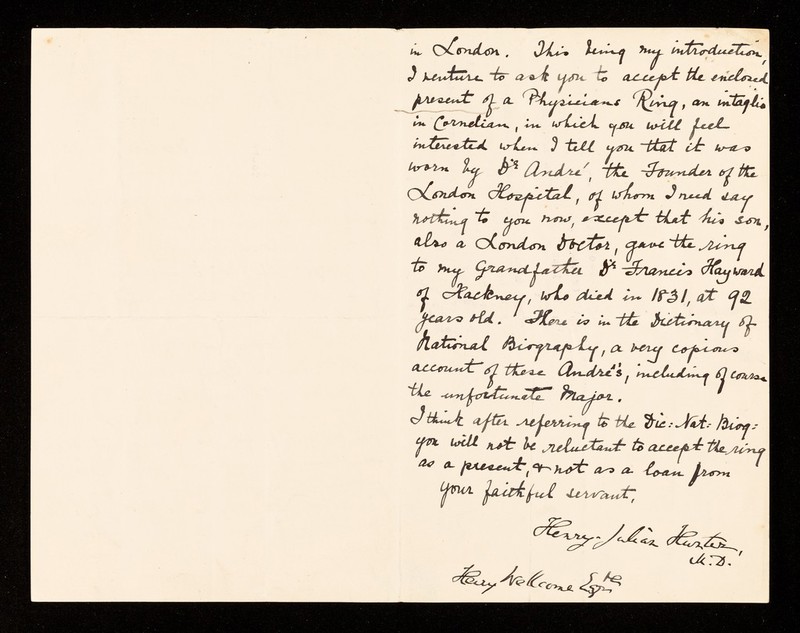 in London. This being my introduction,
I venture to ask you to accept the enclosed
present of a Physicians Ring, an intaglio
in Cornelian, in which you will feel
interested when I tell you that it was
worn by Dr. André, the Founder of the
London Hospital, of whom I need say
nothing to you now, except that his son,
also a London Doctor, gave the ring
to my Grandfather Dr. Francis Hayward
of Hackney, who died in 1831, at 92
years old. There is in the Dictionary of
National Biography, a very copious
account of these André's, including of course
the unfortunate Major.
I think after referring to the Dic: Nat: Biog:
you will not be reluctant to accept the ring
as a present, & not as a loan from
your faithful servant,
Henry Julian Hunter,
M.D.
Henry Wellcome Esqre